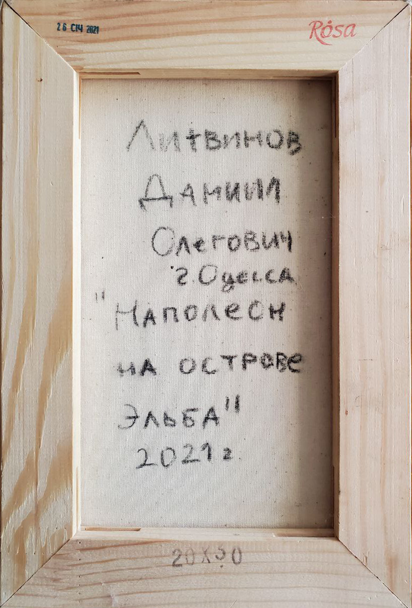 26 СІЧ 2021
Rósa
Литвинов
Даниил
Олегович
г. Одесса
"Наполеон
на острове
Эльба"
2021 г.
20х50